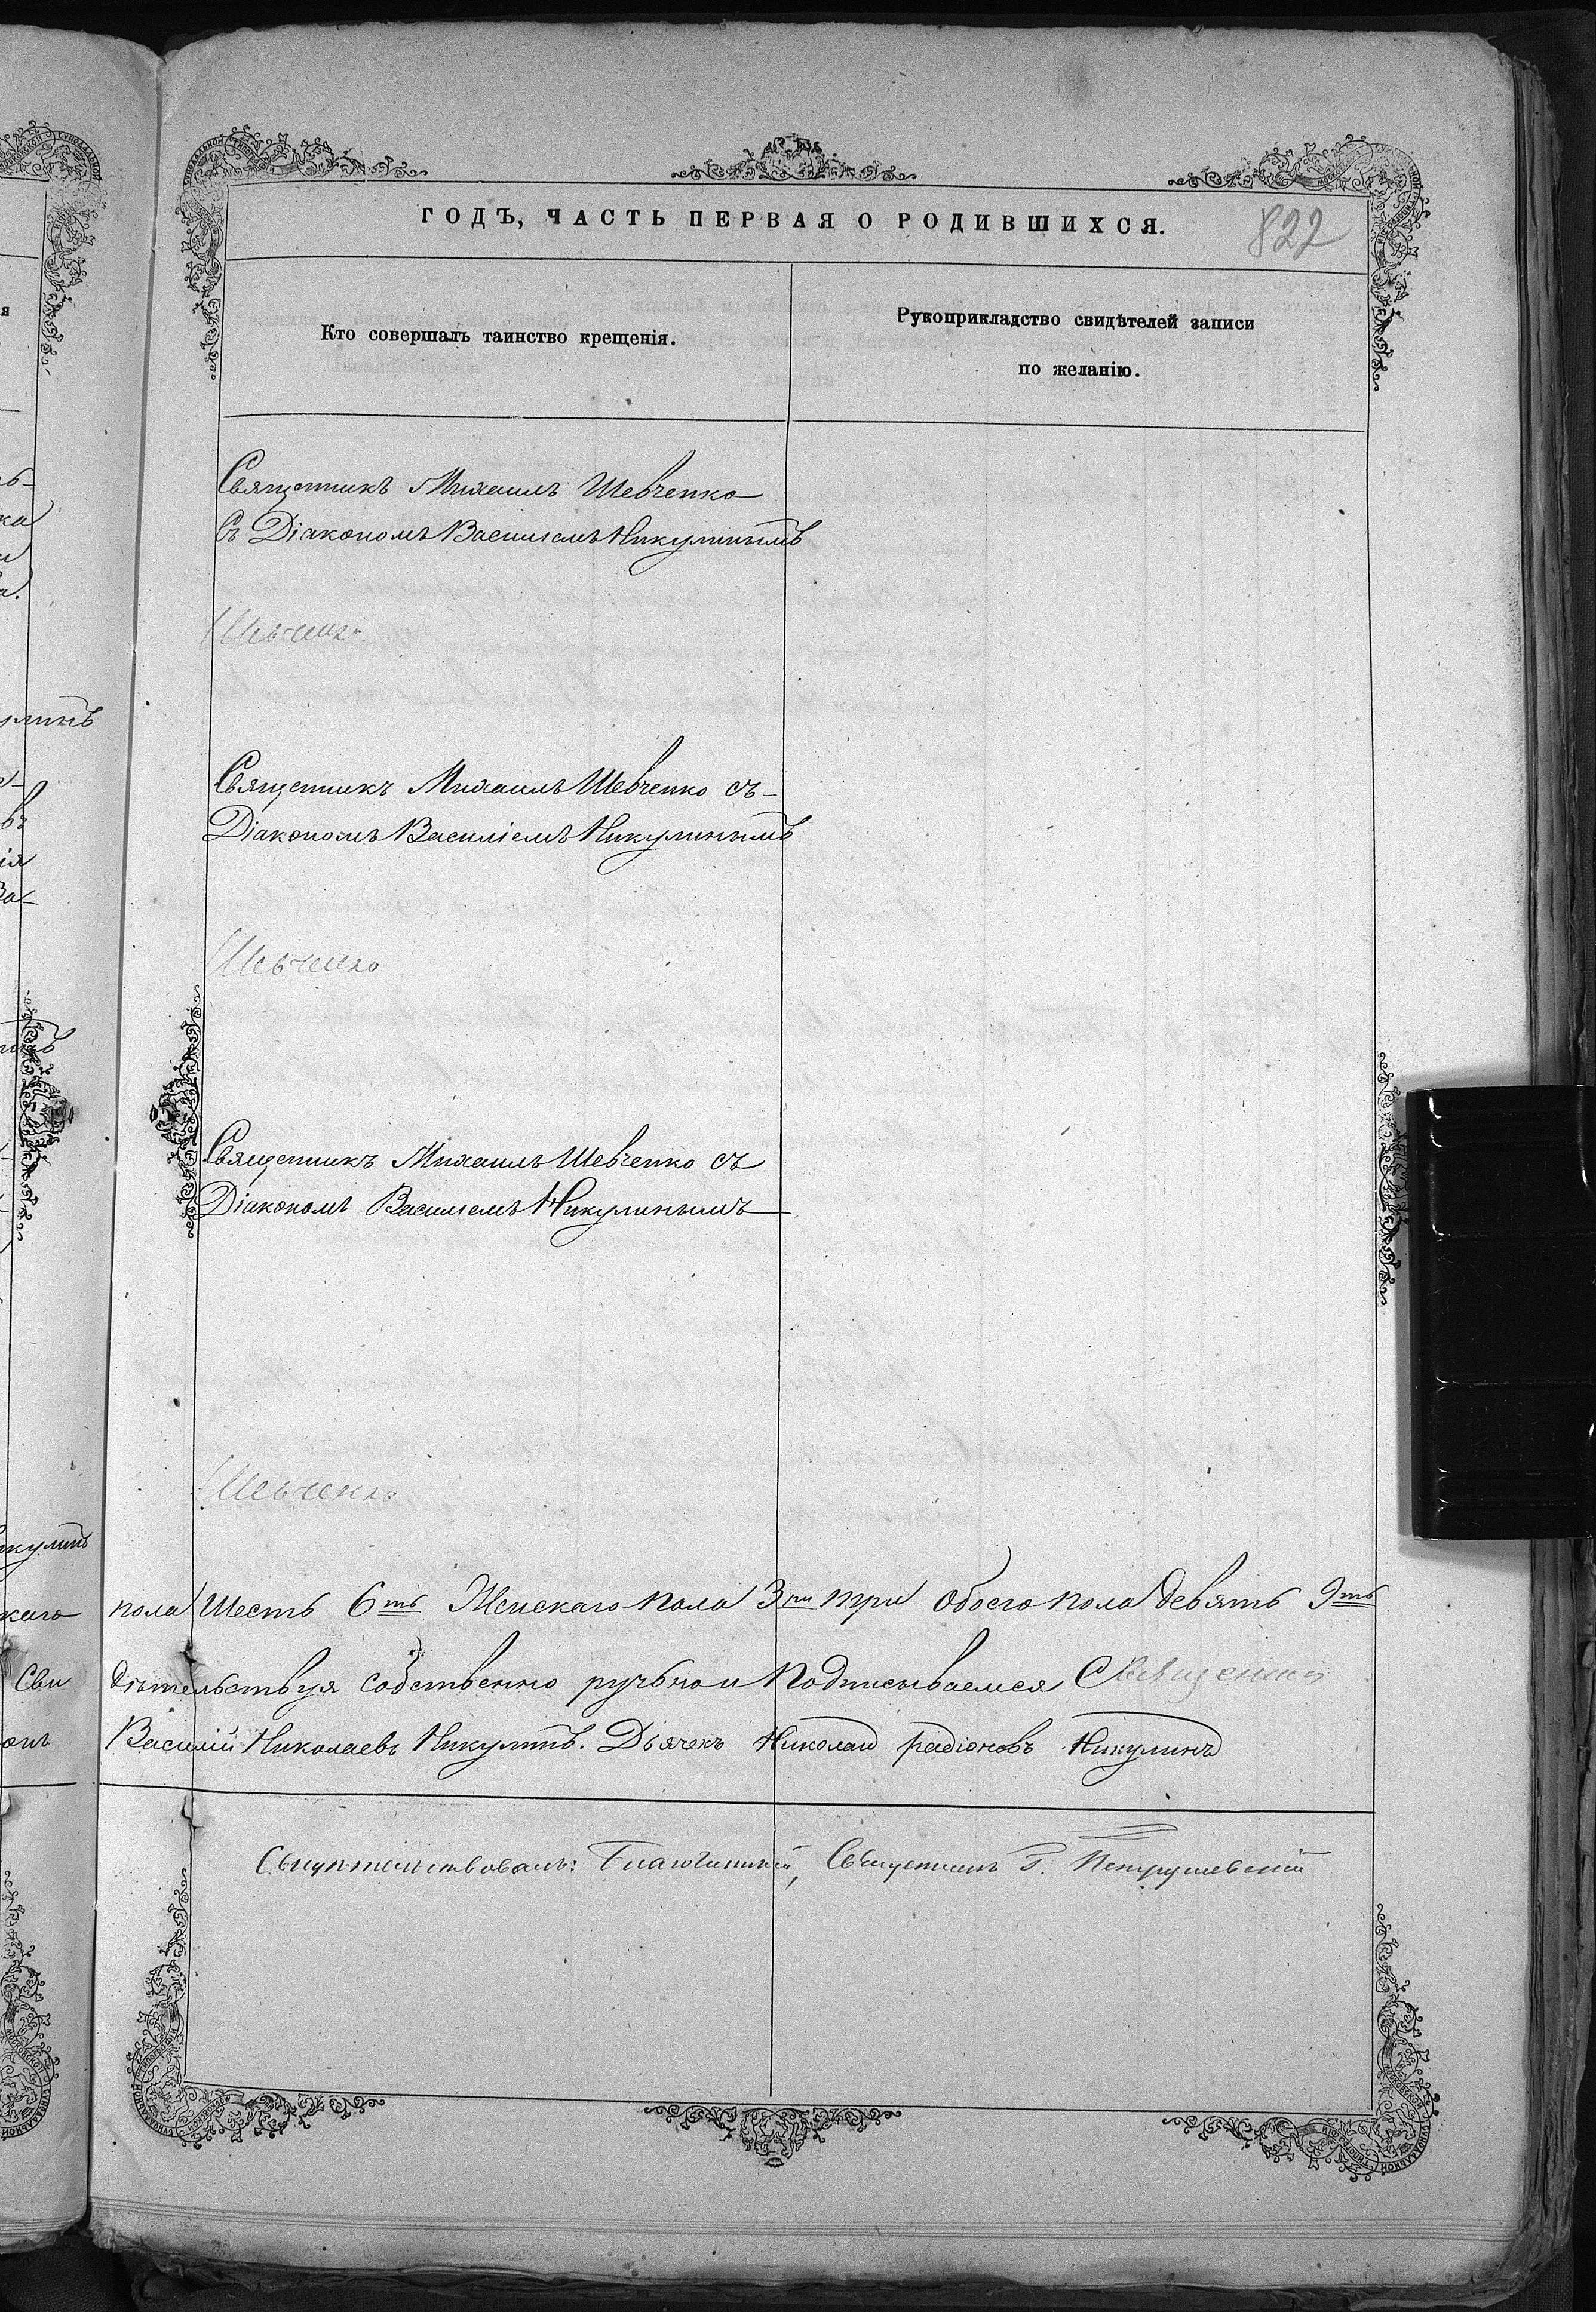 ГОДЪ, ЧАСТЬ ПЕРВАЯ О РОДИВШИХСЯ.
822
Кто совершалъ таинство крещенія.
Рукоприкладство свидѣтелей записи
по желанію.
Священникъ Михаилъ Шевченко
съ Діакономъ Василіемъ Никулинымъ
Шевченко
Священникъ Михаилъ Шевченко съ
Діакономъ Василіемъ Никулинымъ
Шевченко
Священникъ Михаилъ Шевченко съ
Діакономъ Василіемъ Никулинымъ
Шевченко
каго пола Шесть 6ть Женскаго пола 3ри три Обоего пола девять 9ть
Сви дѣтельствуя собственно ручьною Подписываемся Священникъ
онъ Василій Николаевъ Никулинъ. Дьячекъ Николай радіоновъ Никулинъ
Свидѣтельствовалъ: Благочинный, Священникъ Г. Петрушевскій